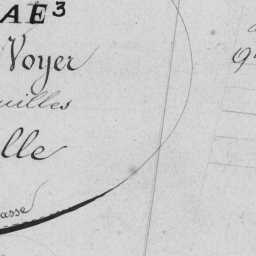 AE³
Voyer
uilles
lle
asse